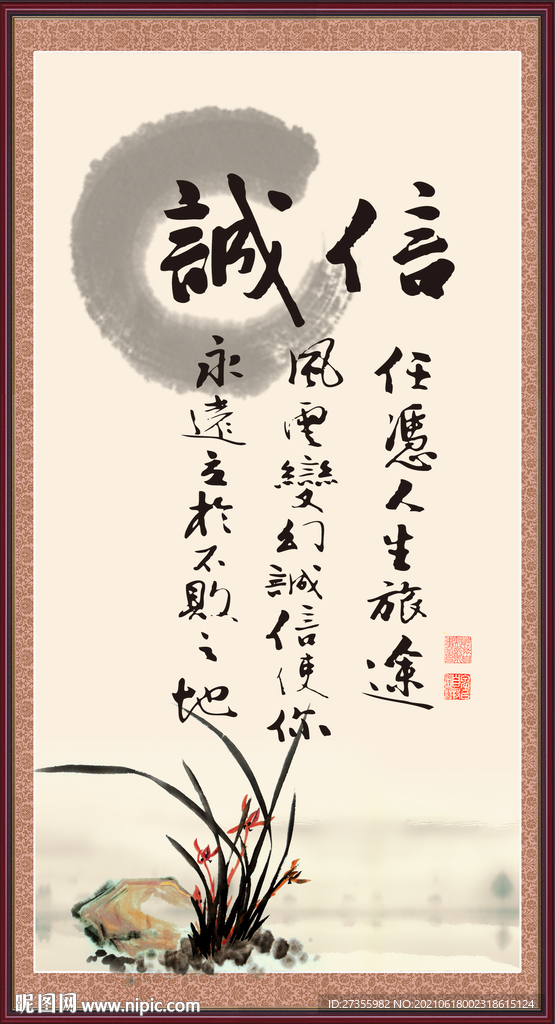 誠信
任憑人生旅途
風雲變幻誠信使你
永遠立於不敗之地
昵图网 www.nipic.com
ID:27355982 NO:20210618002318615124